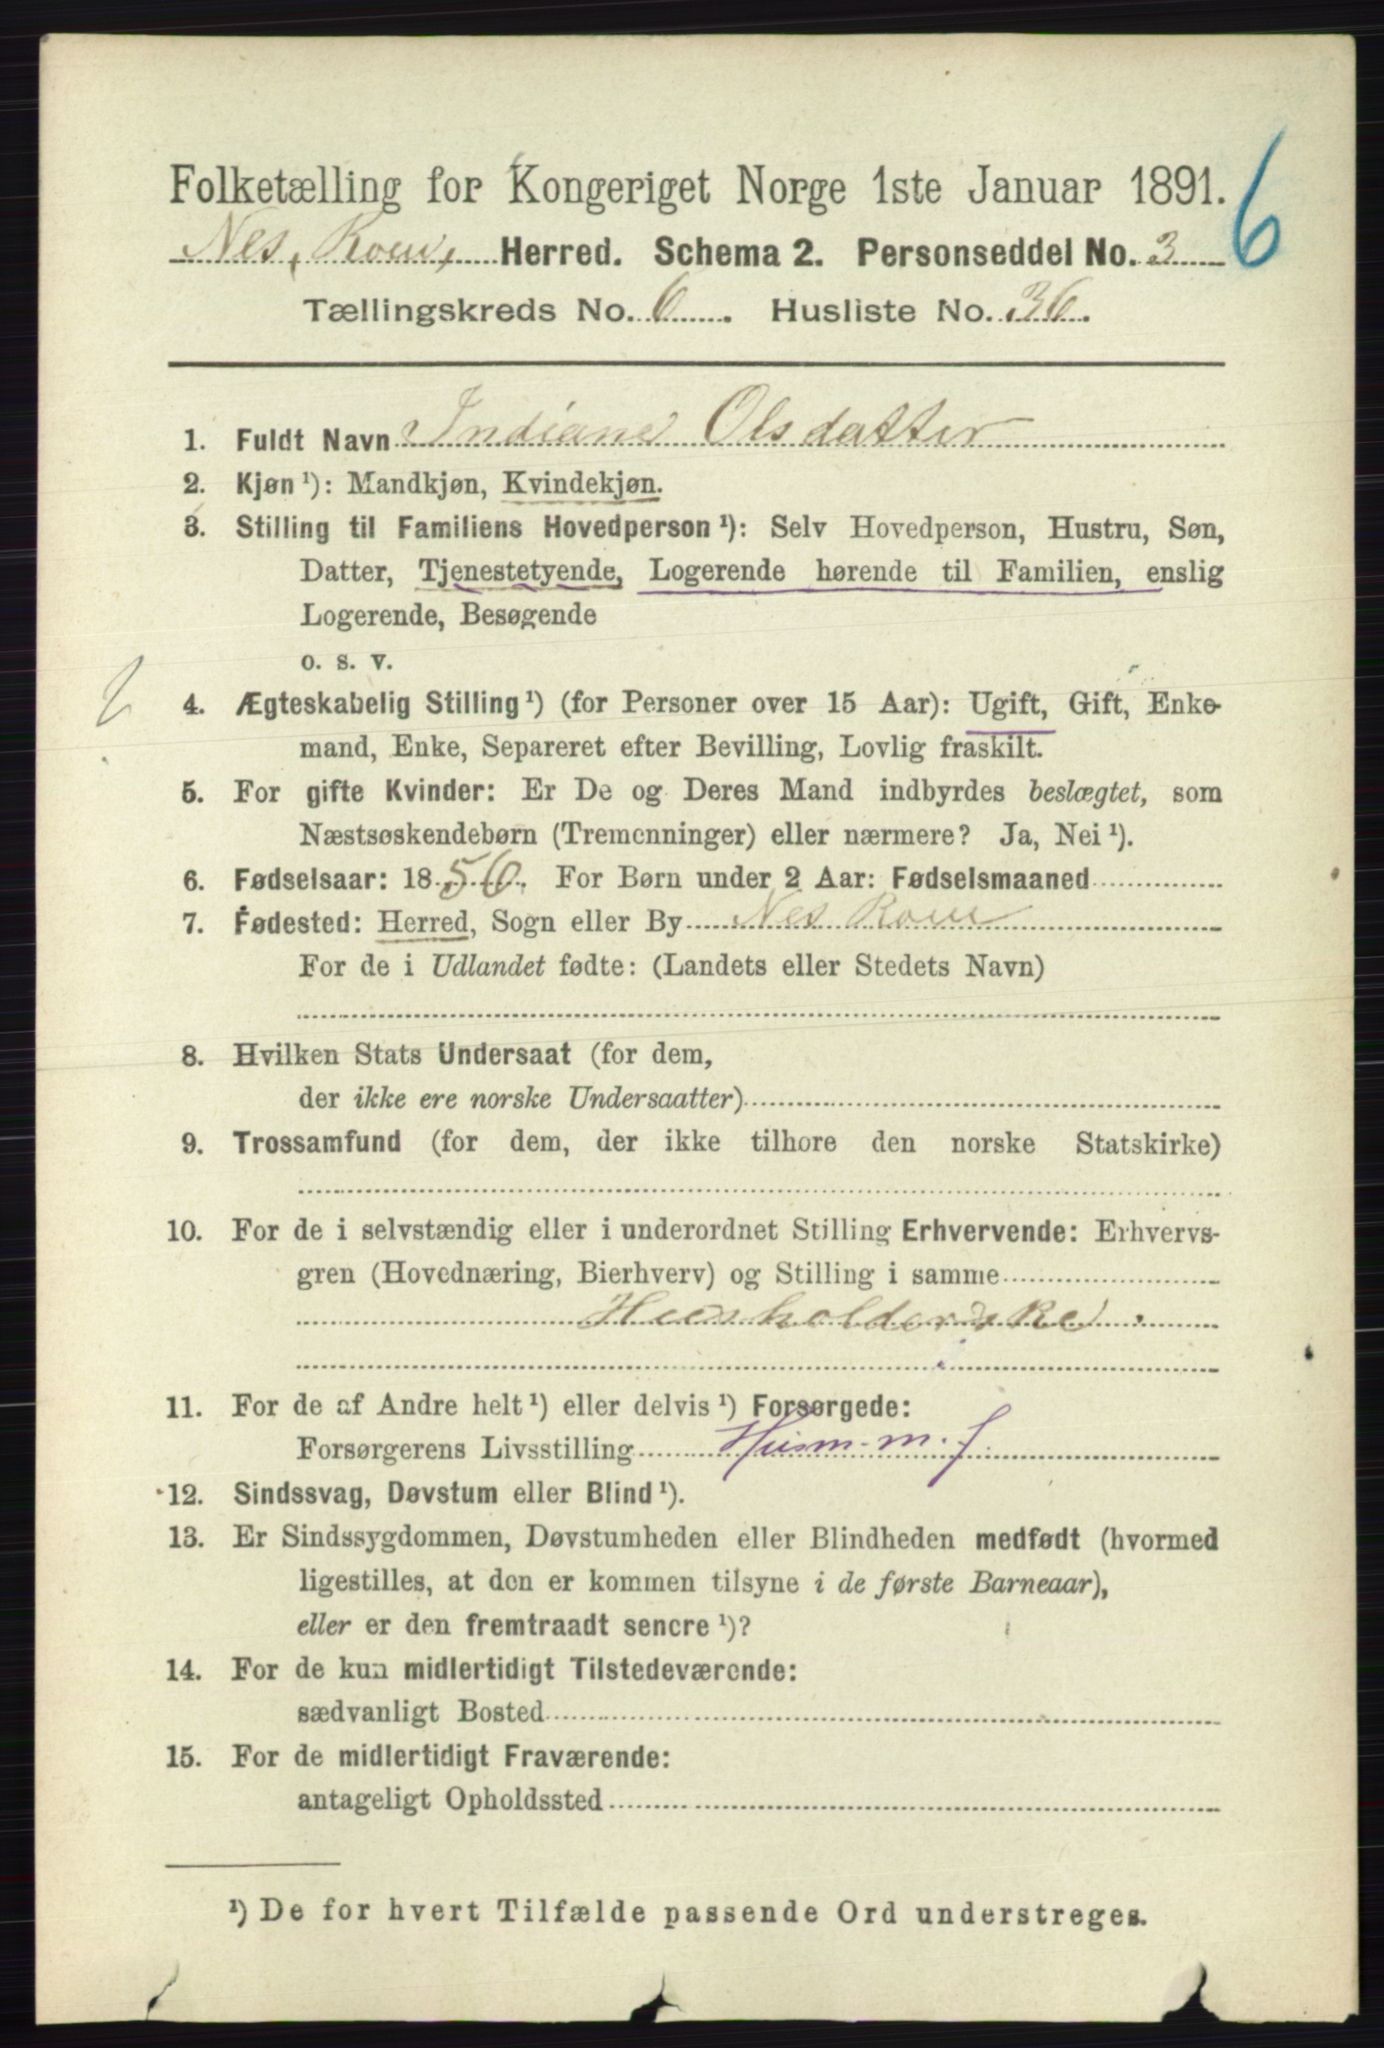 Folketælling for Kongeriget Norge 1ste Januar 1891.
6
Nes, Rom, Herred. Schema 2. Personseddel No. 3
Tællingskreds No. 6. Husliste No. 36.
1. Fuldt Navn Indiane Olsdatter
2. Kjøn ¹): Mandkjøn, Kvindekjøn.
3. Stilling til Familiens Hovedperson ¹): Selv Hovedperson, Hustru, Søn,
Datter, Tjenestetyende, Logerende hørende til Familien, enslig
Logerende, Besøgende
o. s. v.
4. Ægteskabelig Stilling ¹) (for Personer over 15 Aar): Ugift, Gift, Enke-
mand, Enke, Separeret efter Bevilling, Lovlig fraskilt.
5. For gifte Kvinder: Er De og Deres Mand indbyrdes beslægtet, som
Næstsøskendebørn (Tremenninger) eller nærmere? Ja, Nei ¹).
6. Fødselsaar: 1856. For Børn under 2 Aar: Fødselsmaaned
7. Fødested: Herred, Sogn eller By Nes Rom
For de i Udlandet fødte: (Landets eller Stedets Navn)
8. Hvilken Stats Undersaat (for dem,
der ikke ere norske Undersaatter)
9. Trossamfund (for dem, der ikke tilhøre den norske Statskirke)
10. For de i selvstændig eller i underordnet Stilling Erhvervende: Erhvervs-
gren (Hovednæring, Bierhverv) og Stilling i samme
Huusholderske.
11. For de af Andre helt ¹) eller delvis ¹) Forsørgede:
Forsørgerens Livsstilling Husm. m. J.
12. Sindssvag, Døvstum eller Blind ¹).
13. Er Sindssygdommen, Døvstumheden eller Blindheden medfødt (hvormed
ligestilles, at den er kommen tilsyne i de første Barneaar),
eller er den fremtraadt senere ¹)?
14. For de kun midlertidigt Tilstedeværende:
sædvanligt Bosted
15. For de midlertidigt Fraværende:
antageligt Opholdssted
¹) De for hvert Tilfælde passende Ord understreges.